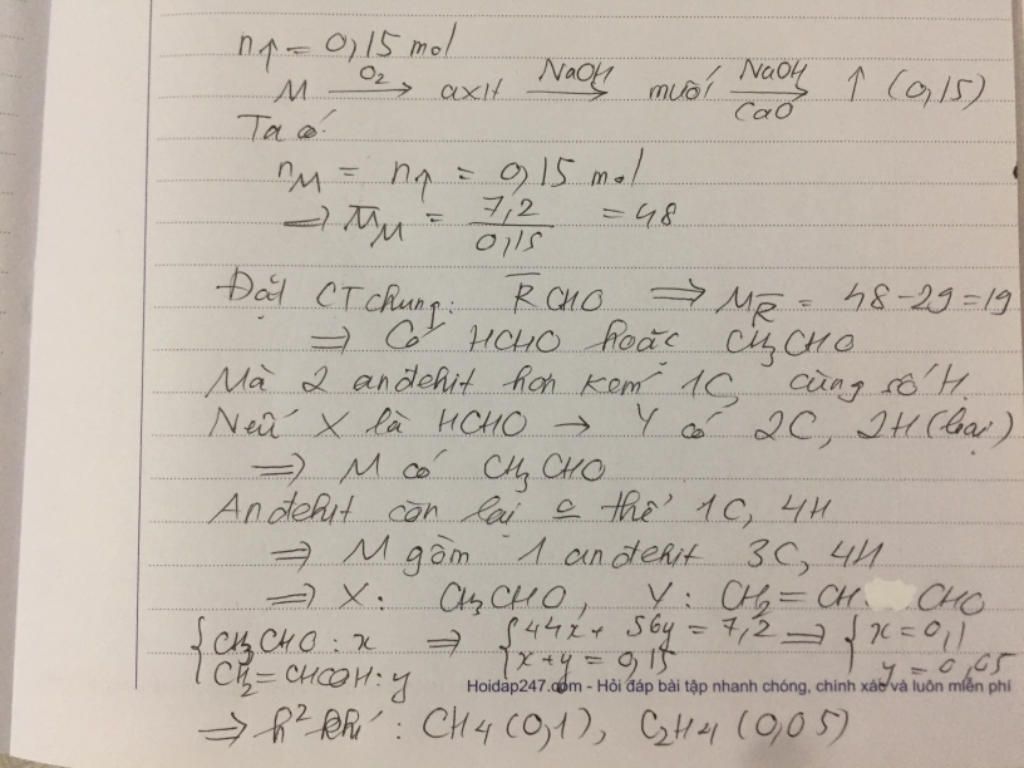 n↑ = 0,15 mol
M —O2→ axit —NaOH→ muối —NaOH/CaO→ ↑ (0,15)
Ta có
nM = n↑ = 0,15 mol
=> M̅M = 7,2/0,15 = 48
Đặt CT chung: R̅CHO => MR̅ = 48-29=19
=> Có HCHO hoặc CH3CHO
Mà 2 anđehit hơn kém 1C, cùng số H.
Nếu X là HCHO → Y có 2C, 2H (loại)
=> M có CH3CHO
Anđehit còn lại có thể 1C, 4H
=> M gồm 1 anđehit 3C, 4H
=> X: CH3CHO, Y: CH2=CH CHO
{CH3CHO: x => {44x+ 56y = 7,2 => {x = 0,1
CH2=CHCOH: y x+y = 0,15 y = 0,05
Hoidap247.com - Hỏi đáp bài tập nhanh chóng, chính xác và luôn miễn phí
=> h² khí: CH4 (0,1), C2H4 (0,05)